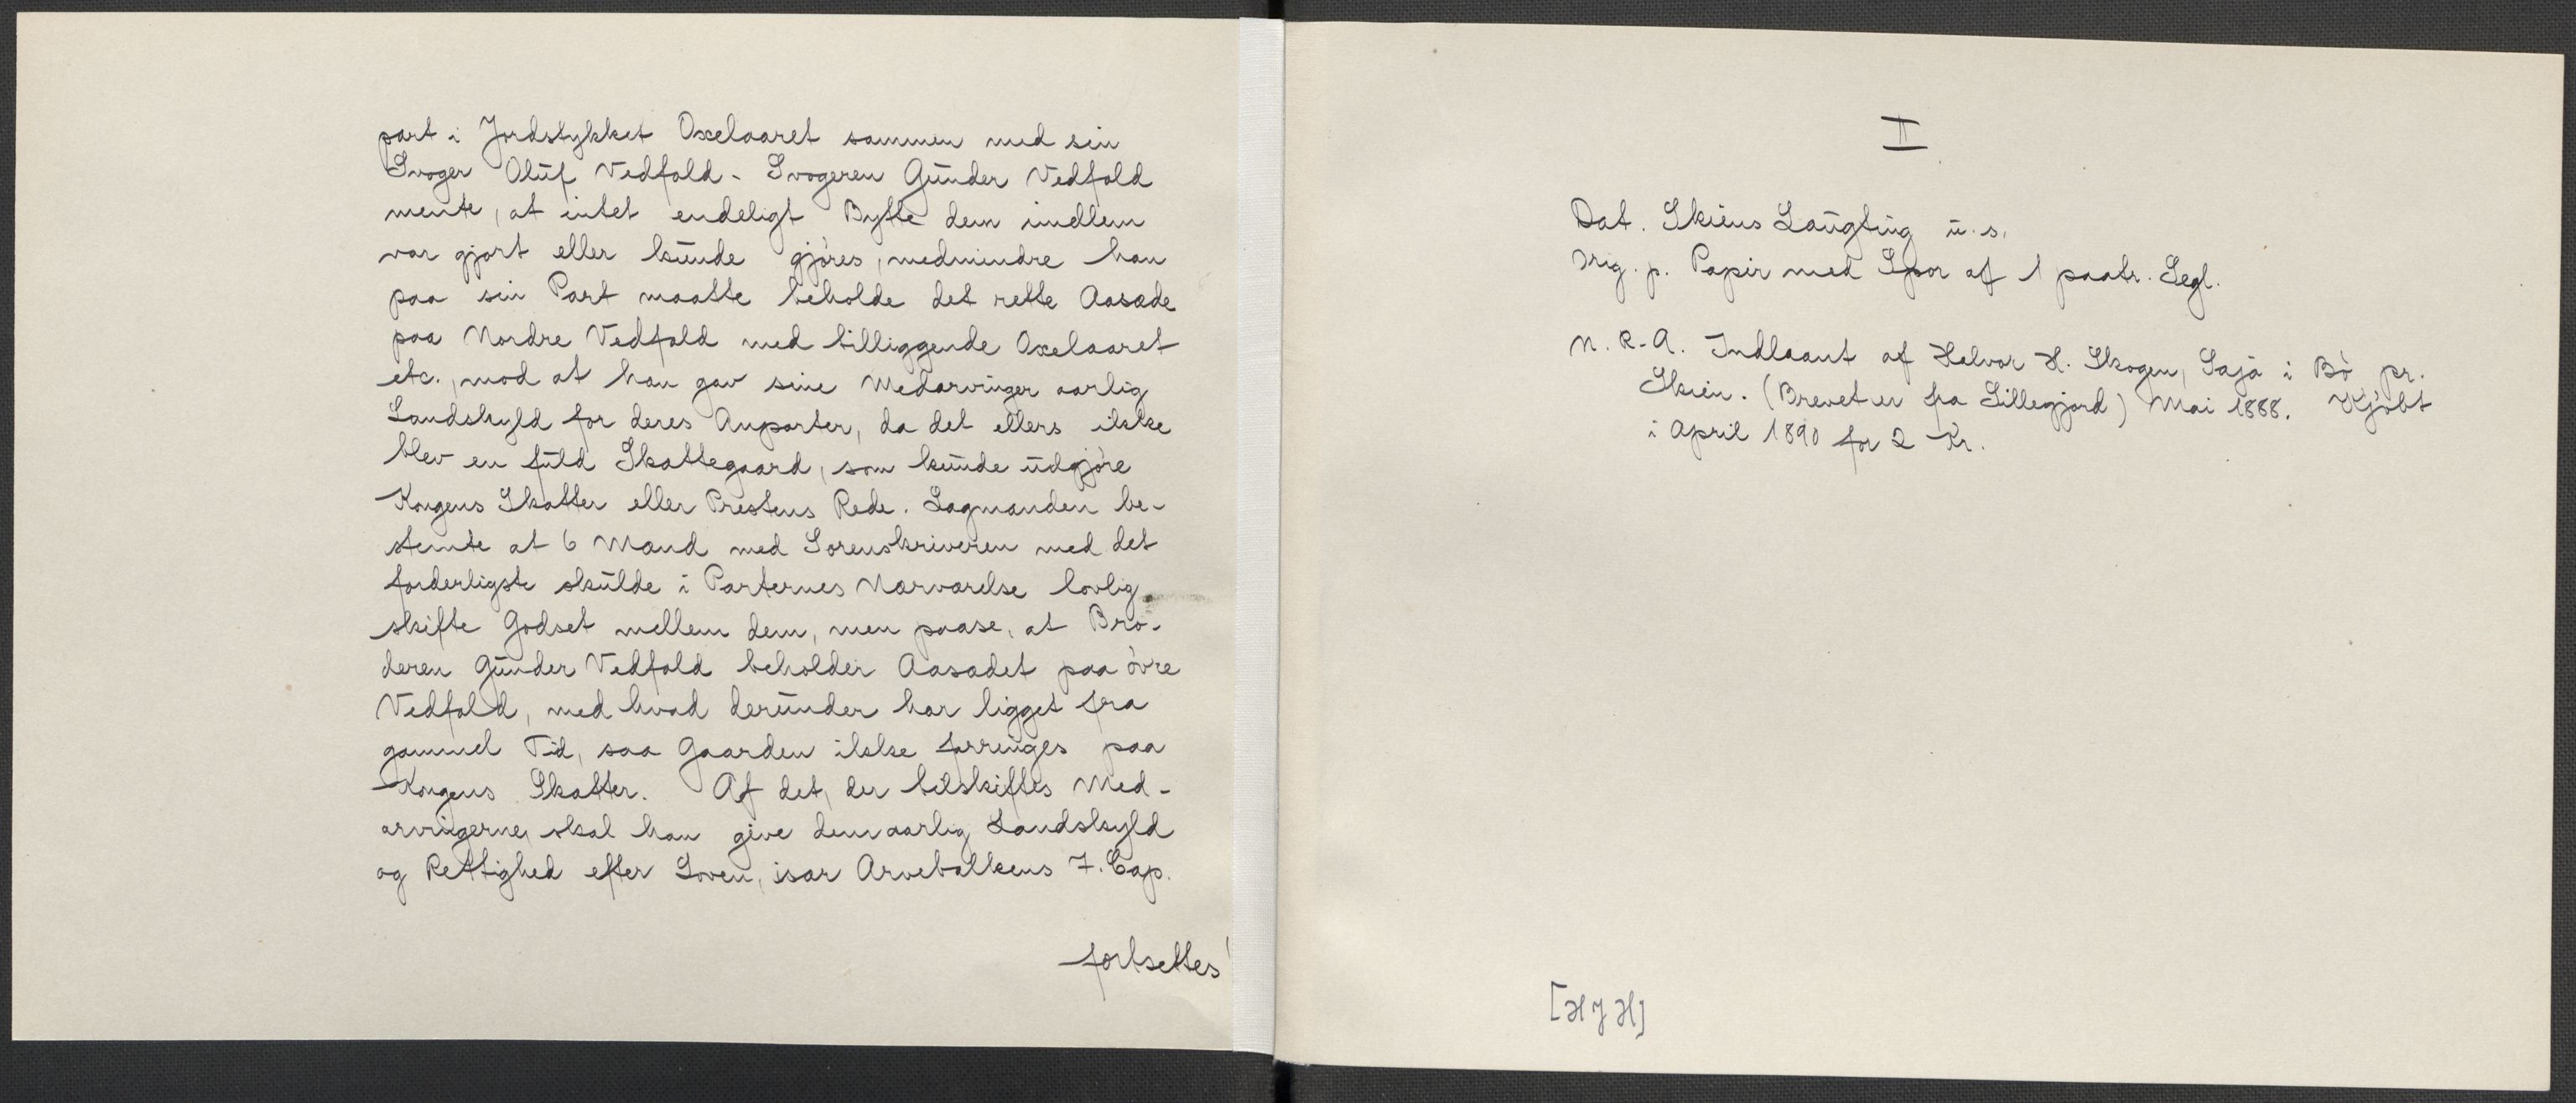 part i Jordstykket Oxelaaret sammen med sin
Svoger Oluf Vedfald - Svogeren Gunder Vedfald
mente, at intet endeligt Bytte dem imellem
var gjort eller kunde gjøres, medmindre han
paa sin Part maatte beholde det rette Aasæde
paa Nordre Vedfald med tilliggende Oxelaaret
etc., mod at han gav sine Medarvinger aarlig
Landskyld for deres Anparter, da det ellers ikke
blev en fuld Skattegaard, som kunde udgjøre
Kongens Skatter eller Prestens Rede. Lagmanden be-
stemte at 6 Mænd med Sorenskriveren med det
forderligste skulde i Parternes Nærværelse lovlig
skifte Godset mellem dem, men paase, at Brø-
deren Gunder Vedfald beholder Aasædet paa øvre
Vedfald, med hvad derunder har ligget fra
gammel Tid, saa Gaarden ikke forringes paa
Kongens Skatter. Af det, der tilskiftes Med-
arvingerne, skal han give dem aarlig Landskyld
og Rettighed efter Loven, især Arvebalkens 7. Cap.
fortsettes
II
Dat. Skiens Laugting u. s.
Orig. p. Papir med Spor af 1 paatr. Segl.
N. R-A. Indlaant af Halvor H. Skogen, Sajå i Bø pr.
Skien. (Brevet er fra Lillegjord) Mai 1888. Kjøbt
i April 1890 for 2 Kr.
[HJH]